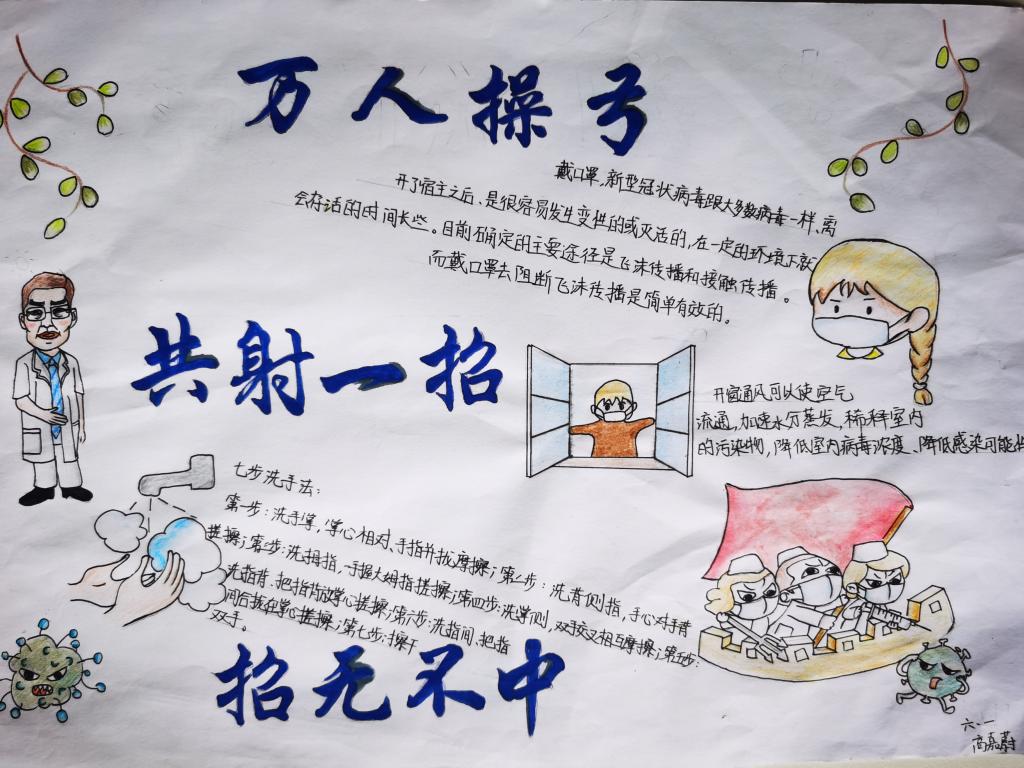 万人操弓
戴口罩,新型冠状病毒跟大多数病毒一样、离
开了宿主之后、是很容易发生变性的或灭活的,在一定的环境下就
会存活的时间长些。目前确定的主要途径是飞沫传播和接触传播。
而戴口罩去阻断飞沫传播是简单有效的。
共射一招
开窗通风可以使空气
流通,加速水分蒸发,稀释室内
的污染物,降低室内病毒浓度、降低感染可能性
七步洗手法:
第一步:洗手掌,掌心相对、手指并拢摩擦;第二步:洗背侧指,手心对手背
搓擦;第步:洗拇指,一手握大姆指搓擦;第四步:洗掌侧,双手交叉相互摩擦;第五步:
洗指背,把指背放掌心搓擦;第六步:洗指间,把指
间合拢在掌心搓擦;第七步:擦干
双手。
招无不中
六.一
高嘉蔚